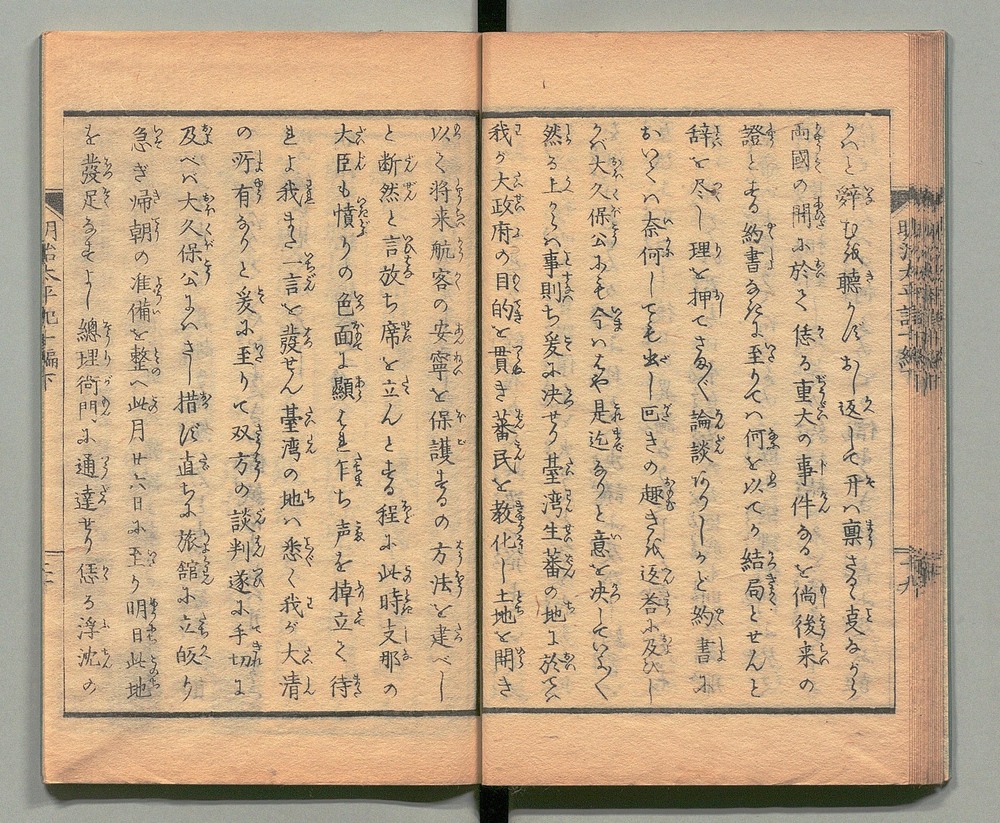 くべと辞むを聽かずおし返して开ハ禀さるゝ㕝ながら
両國の間に於て恁る重大の事件なるを倘後来の
證とする約書なきに至りてハ何を以てか結局とせんと
辞を尽し理を押てさま〴〵論談ありしかど約書に
おいてハ奈何しても出し回きの趣きを返荅に及びし
かバ大久保公にも今ハはや是迄なりと意を决していへらく
然る上からハ事則ち爰に决せり臺湾生蕃の地に於てハ
我が大政府の目的を貫き蕃民を教化し土地を開き
以て将来航客の安寧を保護するの方法を建べし
と断然と言放ち席を立んとする程に此時支那の
大臣も憤りの色面に顯はれ乍ち声を掉立て待
れよ我また一言を發せん臺湾の地ハ悉く我が大清
の所有なりと爰に至りて双方の談判遂に手切に
及べバ大久保公にハさし措ず直ちに旅舘に立皈り
急ぎ帰朝の准備を整へ此月廿六日に至り明日此地
を發足なすよし總理衙門に通達せり恁る浮沈の
明治太平記十一編下